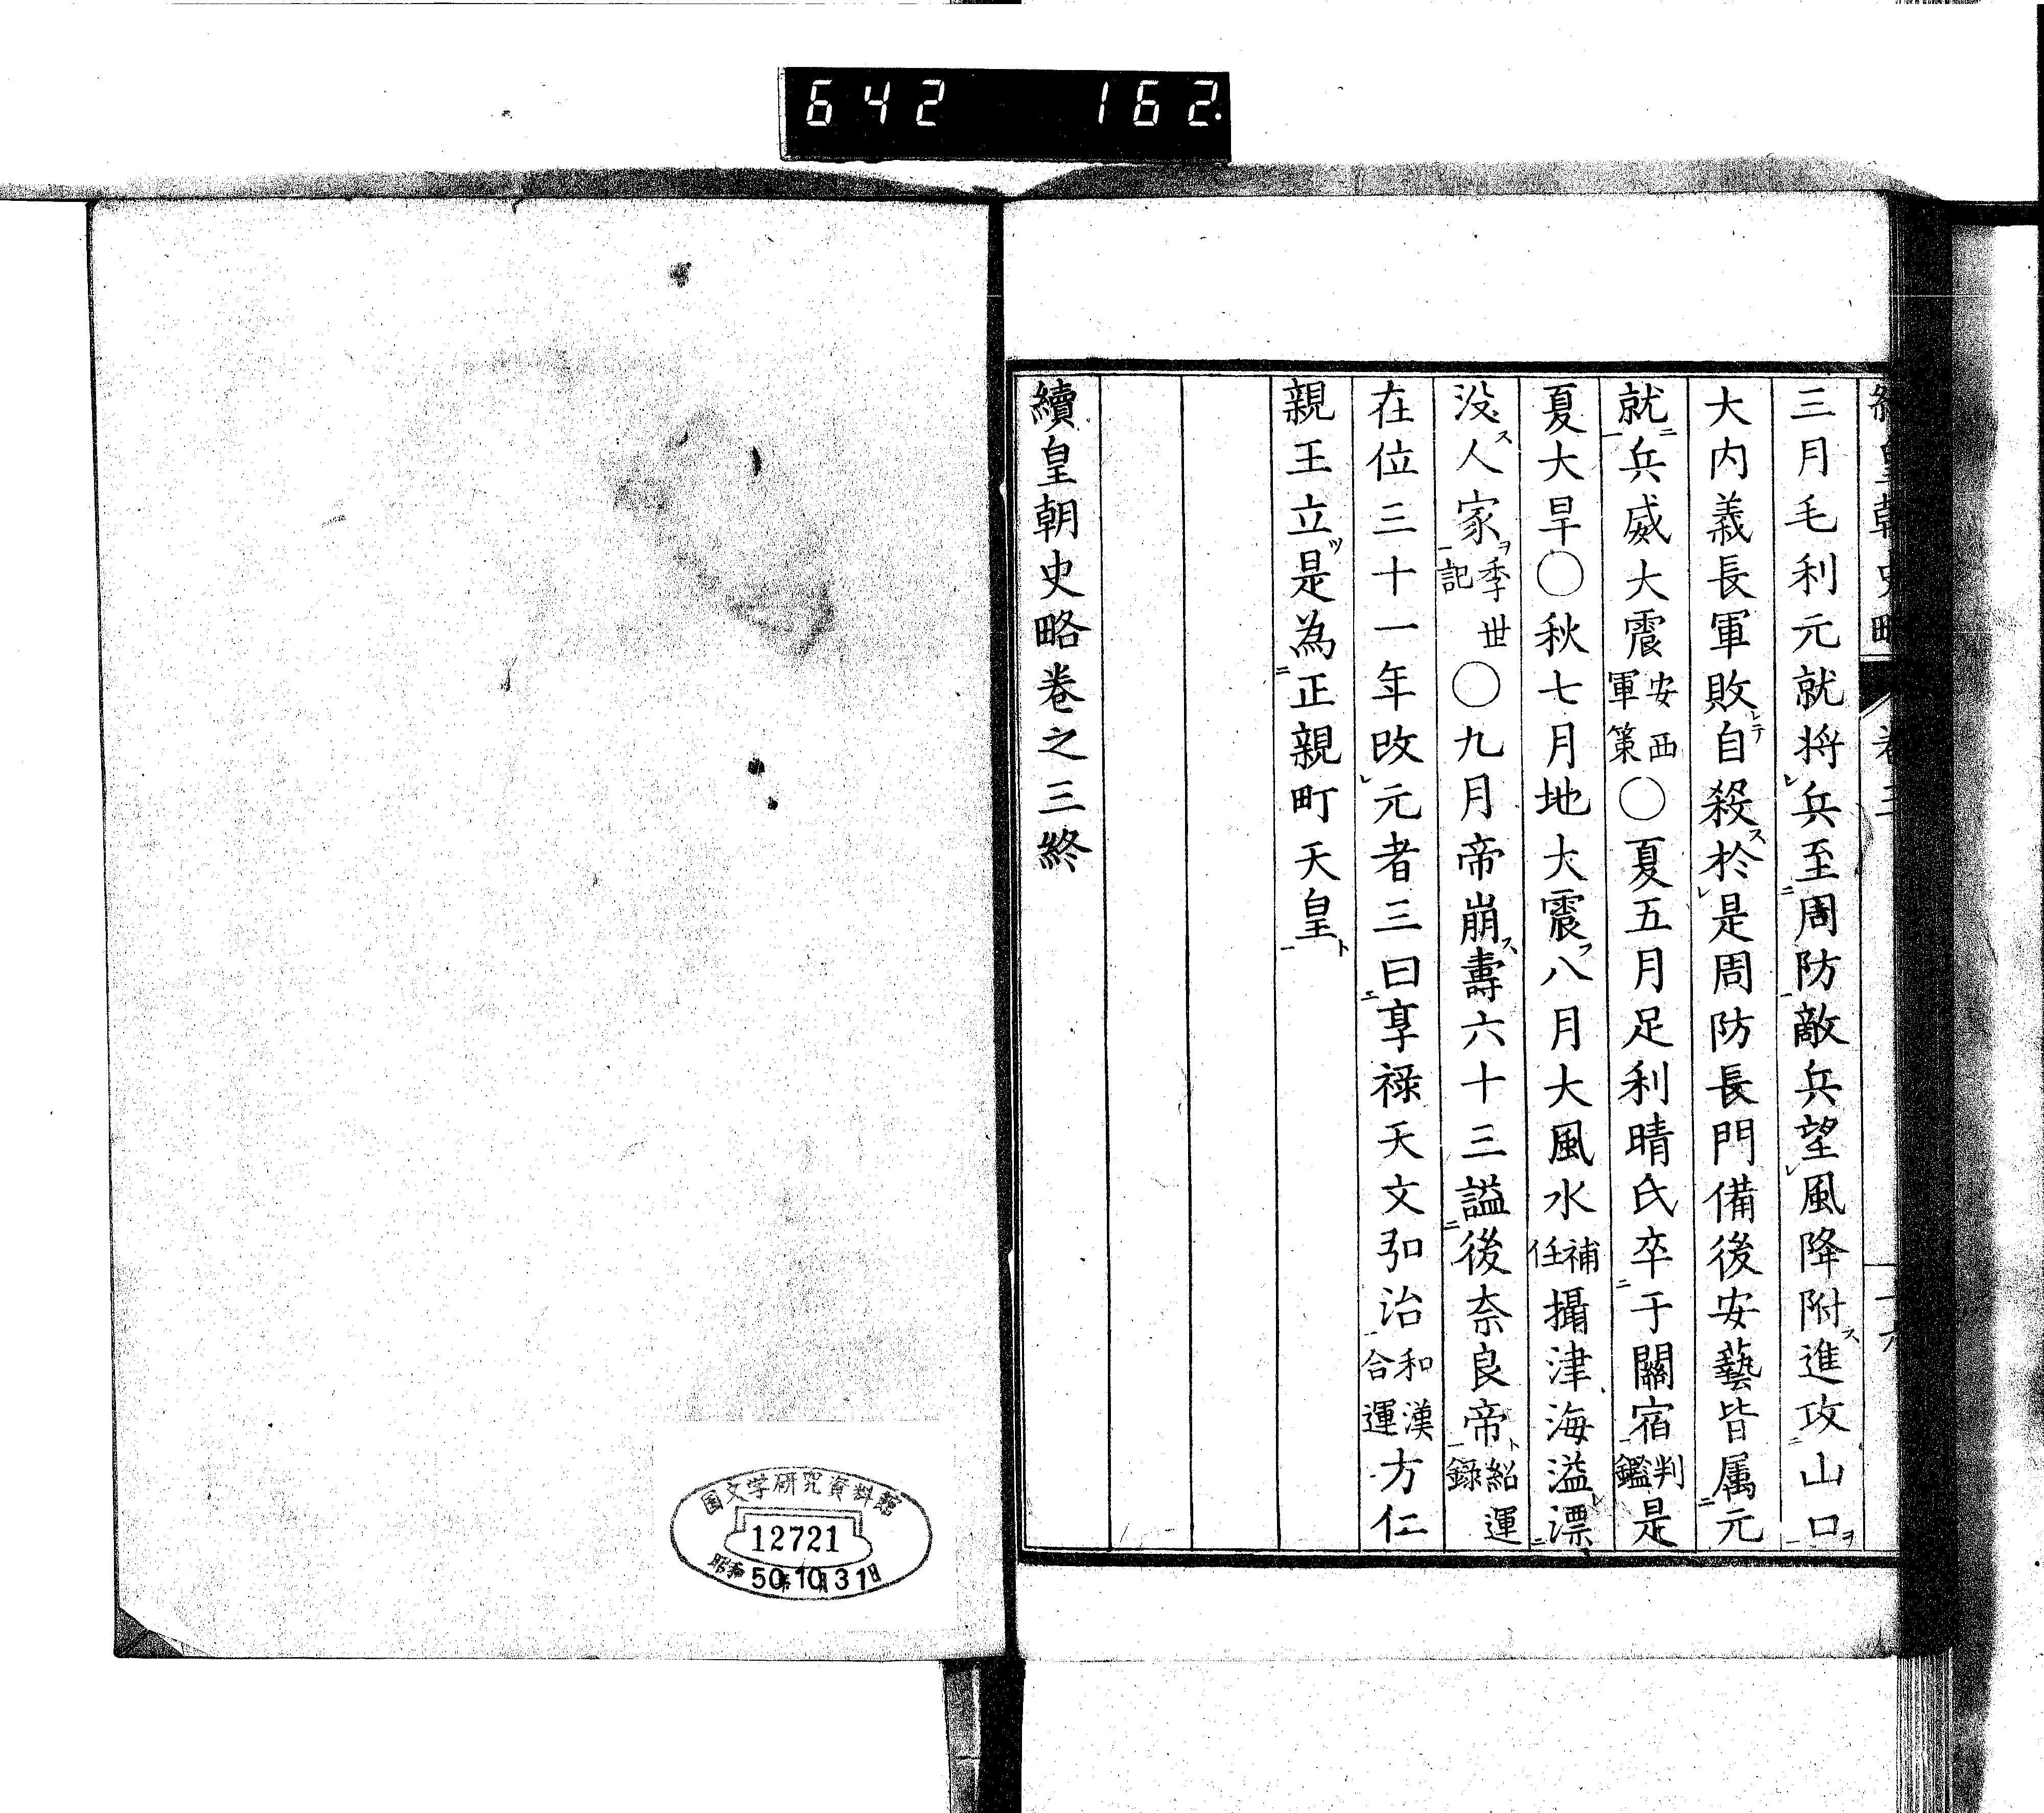 642 162.
三月毛利元就将兵至周防敵兵望風降附ス進攻山口ヲ
大内義長軍敗テ自殺ス於是周防長門備後安藝皆属元
就兵威大震安西軍策〇夏五月足利晴氏卒于關宿判鑑是
夏大旱〇秋七月地大震フ八月大風水補任攝津海溢漂
没ス人家ヲ季世記〇九月帝崩ス壽六十三謚後奈良帝ト紹運録
在位三十一年改元者三曰享禄天文弘治和漢合運方仁
親王立ツ是為正親町天皇ト
續皇朝史略卷之三終
国文学研究資料館
12721
昭和50年10月31日